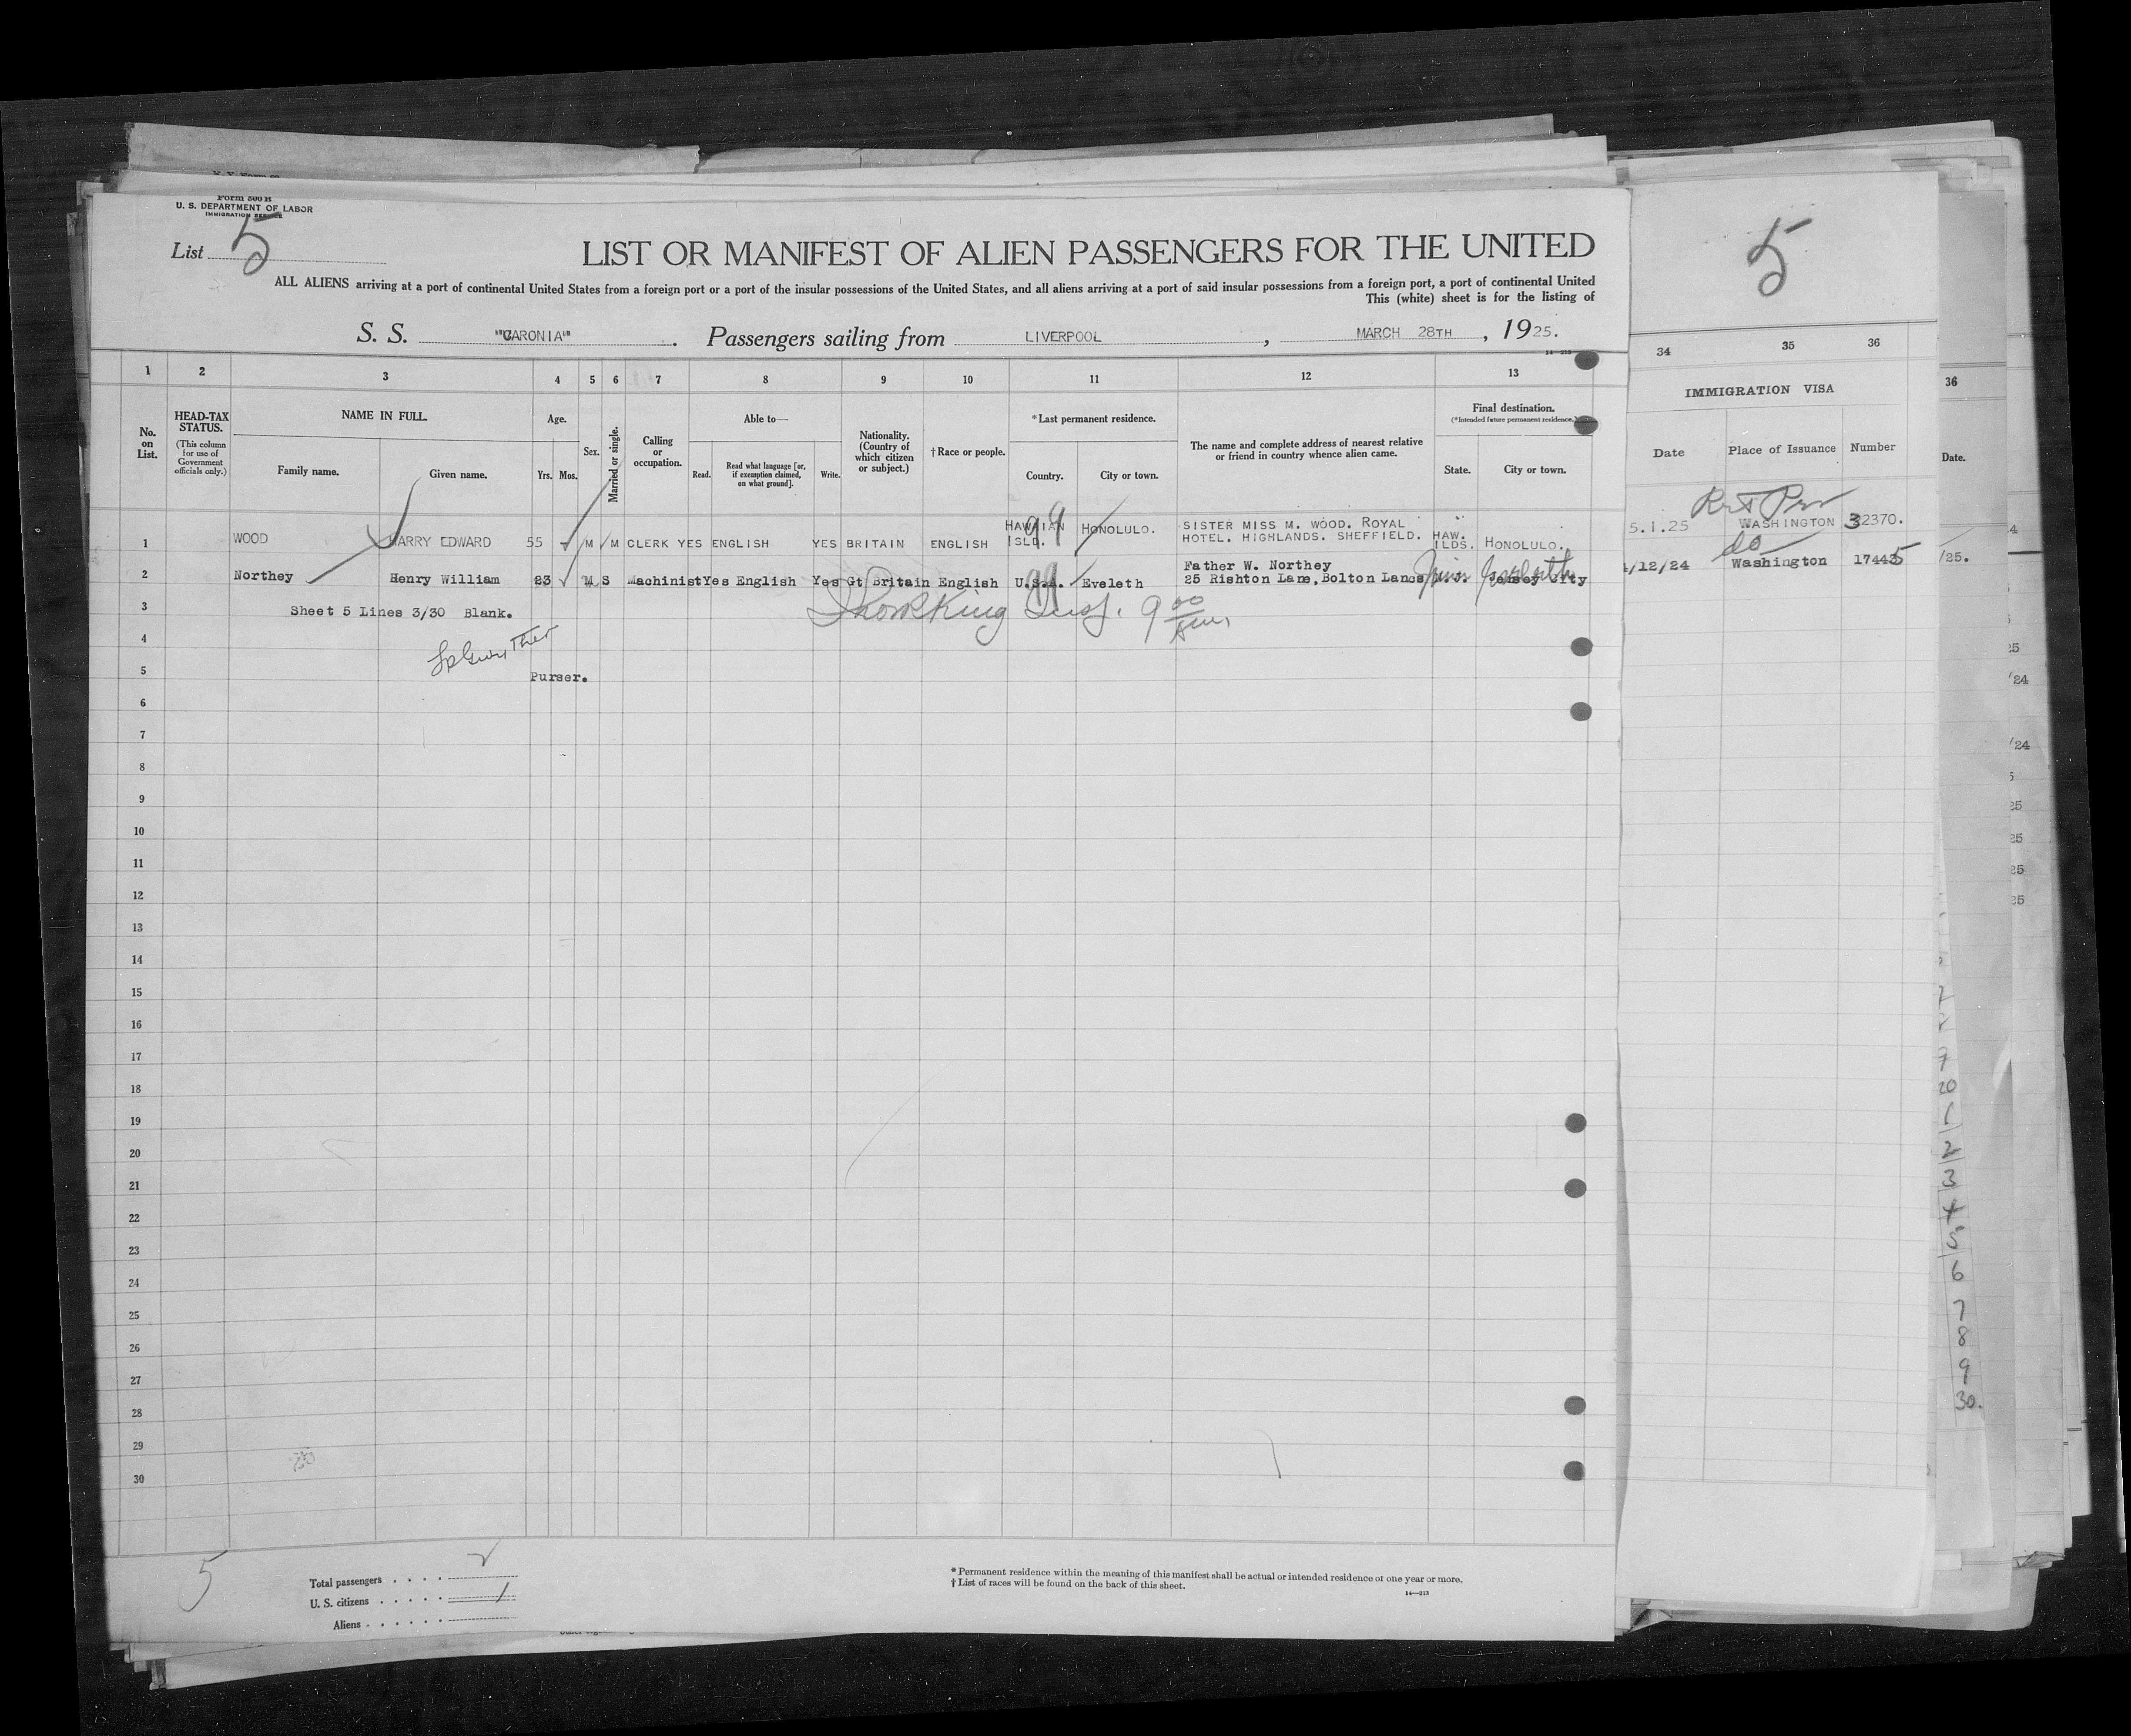 Form 500 B
U. S. DEPARTMENT OF LABOR
IMMIGRATION SERVICE
List 5
LIST OR MANIFEST OF ALIEN PASSENGERS FOR THE UNITED
ALL ALIENS arriving at a port of continental United States from a foreign port or a port of the insular possessions of the United States, and all aliens arriving at a port of said insular possessions from a foreign port, a port of continental United
This (white) sheet is for the listing of
S. S. "CARONIA". Passengers sailing from LIVERPOOL, MARCH 28TH, 1925.
5
14—213
1 2 3 4 5 6 7 8 9 10 11 12 13
34 35 36
36
No. on List.
HEAD-TAX STATUS.
(This column for use of Government officials only.)
NAME IN FULL.
Family name. Given name.
Age.
Yrs. Mos.
Sex.
Married or single.
Calling or occupation.
Able to—
Read. Read what language [or, if exemption claimed, on what ground]. Write.
Nationality. (Country of which citizen or subject.)
†Race or people.
*Last permanent residence.
Country. City or town.
The name and complete address of nearest relative or friend in country whence alien came.
Final destination.
(*Intended future permanent residence.)
State. City or town.
IMMIGRATION VISA
Date Place of Issuance Number
Date.
1 WOOD HARRY EDWARD 55 - M M CLERK YES ENGLISH YES BRITAIN ENGLISH HAWAIIAN ISLD. HONOLULO. SISTER MISS M. WOOD. ROYAL HOTEL. HIGHLANDS. SHEFFIELD. HAW. ILDS. HONOLULO. 5.1.25 WASHINGTON 32370.
99
2 Northey Henry William 23 M S Machinist Yes English Yes Gt Britain English U.S.A. Eveleth Father W. Northey 25 Rishton Lane, Bolton Lancs N.J. Jersey City 1/12/24 do Washington 17445 /25.
99
3 Sheet 5 Lines 3/30 Blank.
4
5 Purser.
6
7
8
9
10
11
12
13
14
15
16
17
18
19
20
21
22
23
24
25
26
27
28
29
30
5
Total passengers
U. S. citizens
Aliens
* Permanent residence within the meaning of this manifest shall be actual or intended residence of one year or more.
† List of races will be found on the back of this sheet.
14—213